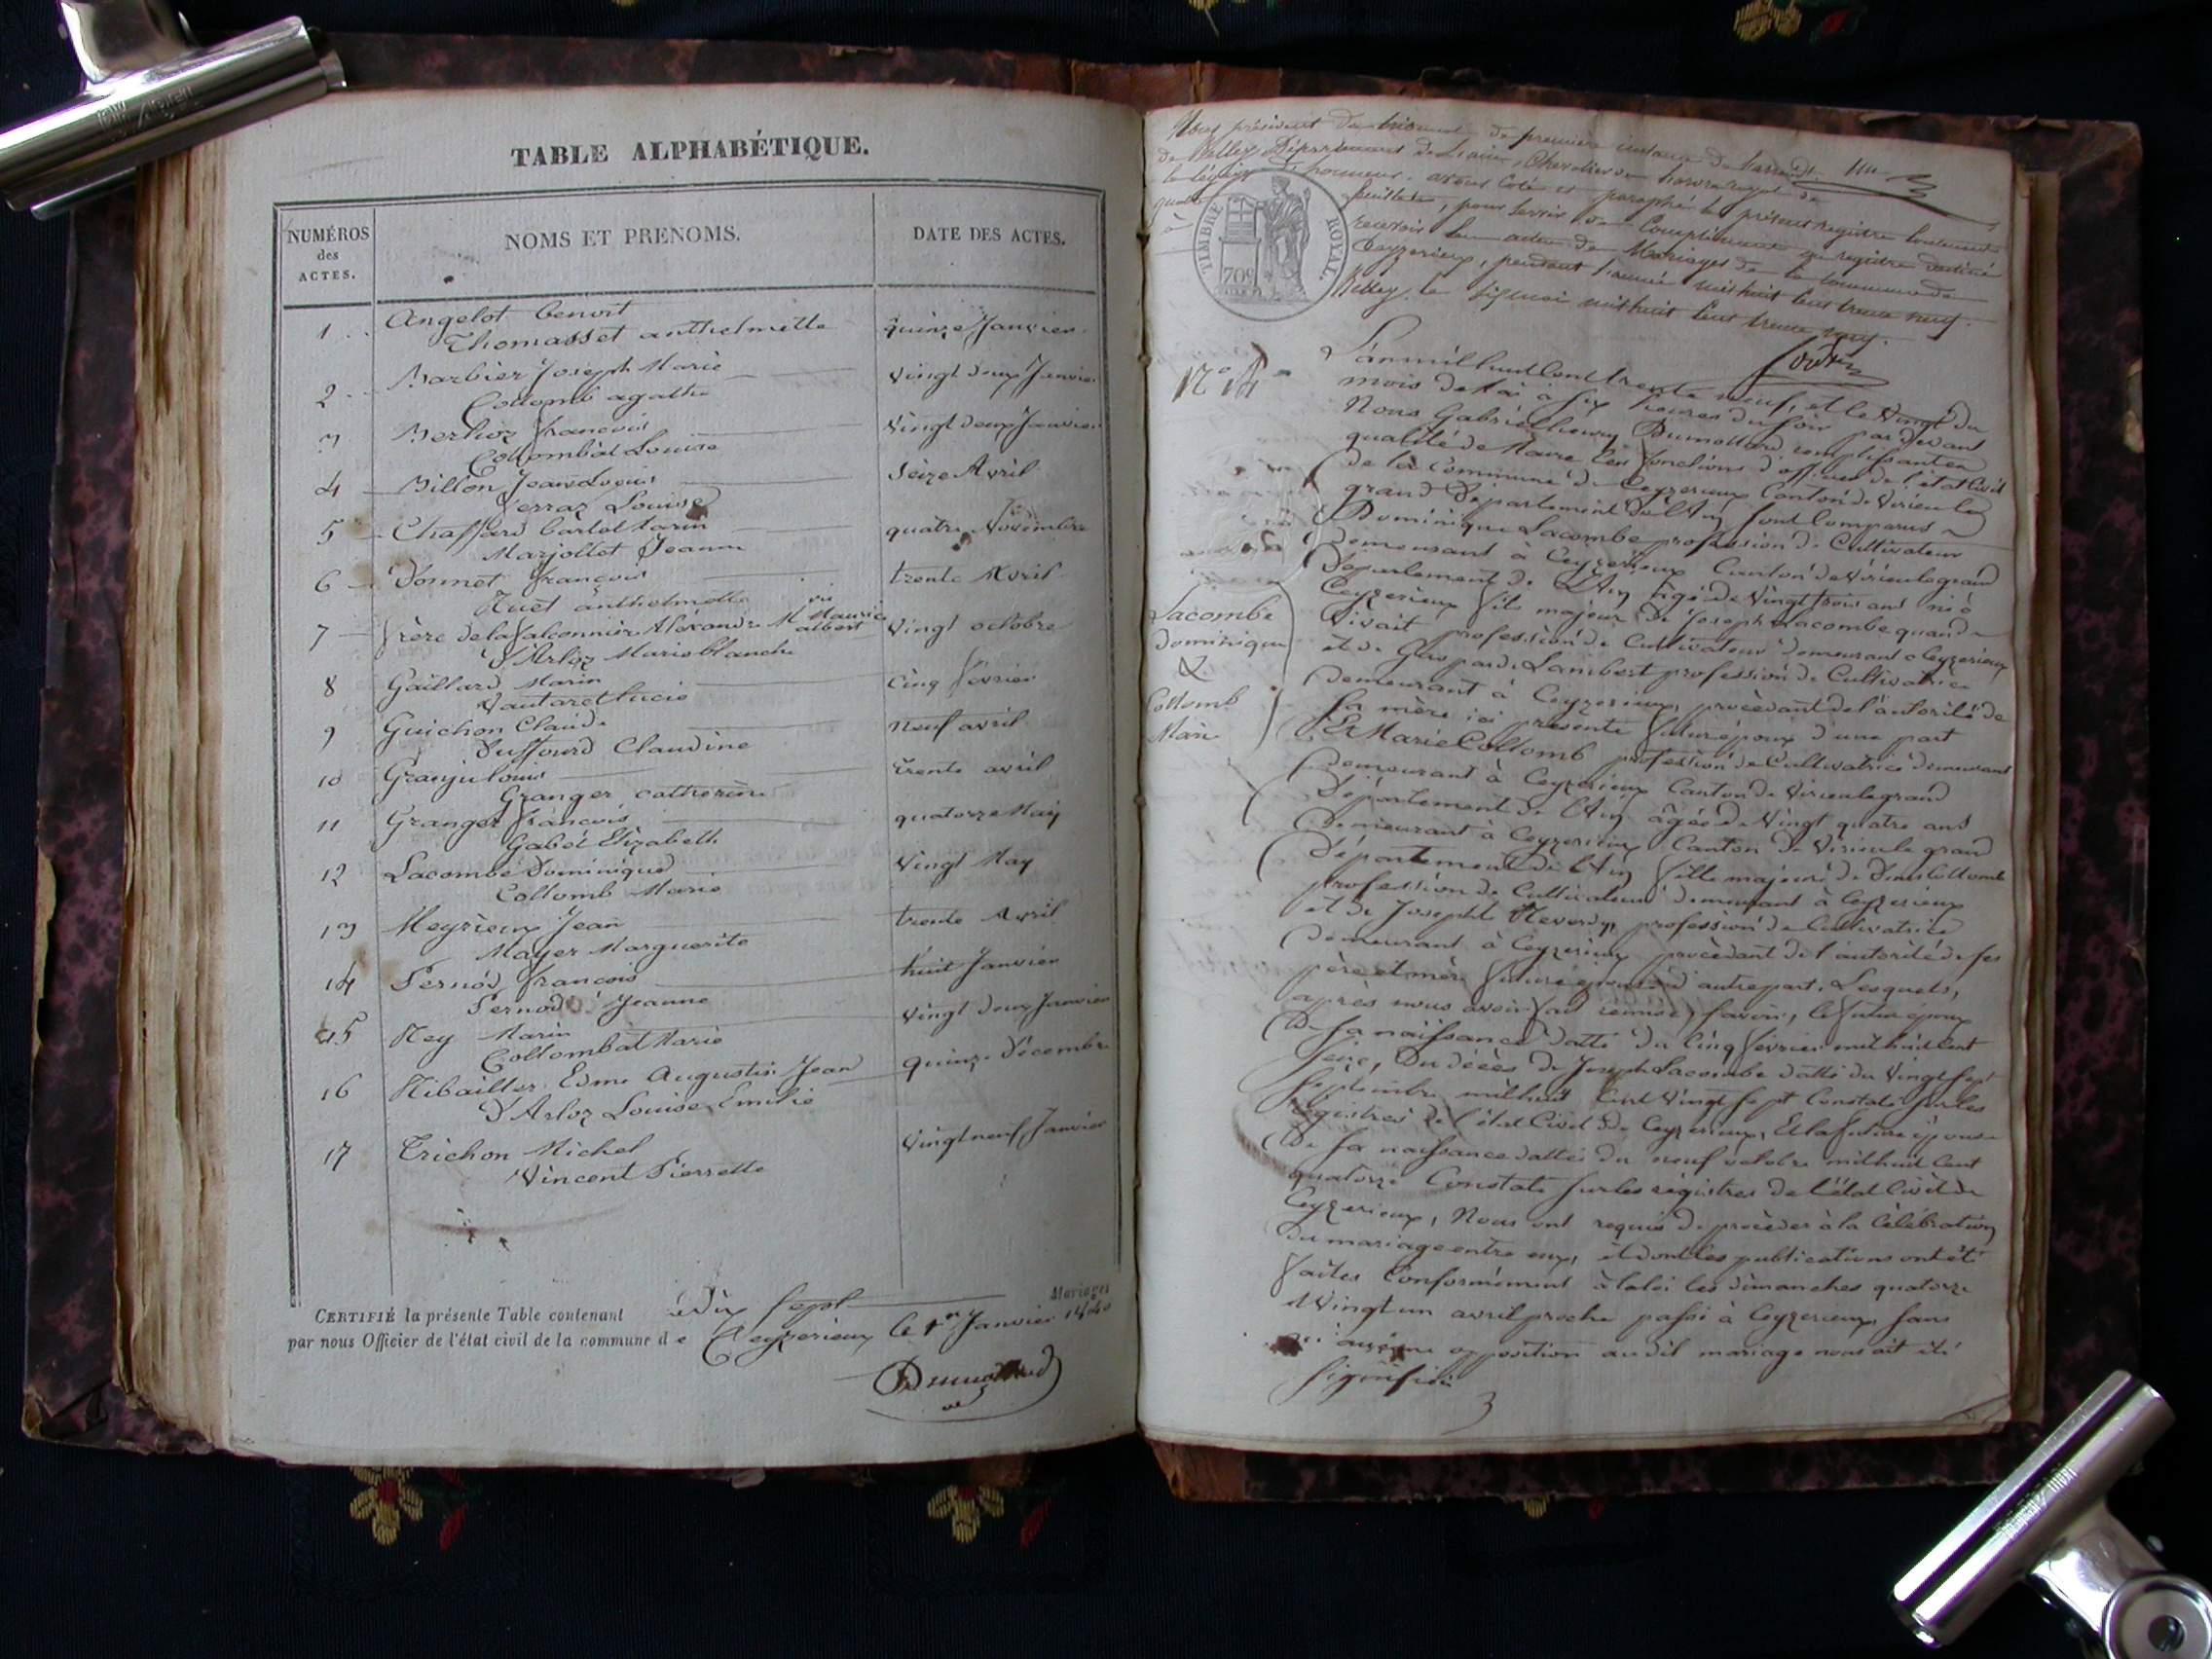 TABLE ALPHABÉTIQUE.
NUMÉROS
des
ACTES.
NOMS ET PRENOMS.
DATE DES ACTES.
1 Angelot benoit quinze Janvier
Thomasset anthelmette
2 Barbier Joseph Marie Vingt deux Janvier
Collomb agathe
3 Berlioz francois Vingt deux Janvier
Collombat Louise
4 Billon Jean Louis Seize Avril
Perraz Louise
5 Chaffard Marin quatre Novembre
Marjollet Jeanne
6 Vonnet françois trente Avril
Huet anthelmette
7 frère de la falconnière Alexandre Maurice albert Vingt octobre
D'Arloz Marie blanche
8 Gaillard Marin Cinq février
Vautaret lucie
9 Guichon Claude Neuf avril
Duffourd Claudine
10 Granju louis trente avril
Granger catherine
11 Granger françois quatorze May
Gabet Elizabeth
12 Lacombe Dominique Vingt May
Collomb Marie
13 Meyrieux Jean trente Avril
Mayer Marguerite
14 Pernod françois huit Janvier
Pernod Jeanne
15 Rey Marin Vingt deux Janvier
Collombat Marie
16 Ribaillier Edme Augustin Jean quinze Décembre
D'Arloz Louise Emilie
17 Trichon Michel Vingt neuf Janvier
Vincent Pierrette
Mariages
CERTIFIÉ la présente Table contenant dix sept
par nous Officier de l'état civil de la commune de Ceyzerieux le 1er Janvier 1840
Dumollard
Nous président du tribunal de première instance de
de Belley Département de L'ain, Chevalier de l'ordre royal de
la légion d'honneur, avons coté et paraphé le présent registre contenant
quatre feuillets, pour servir de Complément au registre destiné
à recevoir les actes de Mariages de la commune de
Ceyzerieux, pendant l'année mil huit cent trente neuf.
Belley le mil huit cent trente neuf.
TIMBRE ROYAL.
70c
N° 14
L'an mil huit Cent trente neuf, et le Vingt du
mois de Mai à six heures du soir par devant
Nous Gabriel henry Dumollard remplissant en
qualité de Maire les fonctions d'officier de l'état Civil
de la Commune de Ceyzerieux Canton de Virieu le
grand Département de l'Ain sont Comparus
Dominique Lacombe profession de Cultivateur
demeurant à Ceyzerieux Canton de Virieu le grand
Département de L'Ain âgé de Vingt trois ans né à
Ceyzerieux fils majeur de Joseph Lacombe quand
Vivait profession de Cultivateur demeurant à Ceyzerieux
et de Gasparde Lambert profession de Cultivatrice
demeurant à Ceyzerieux, procédant de l'autorité de
sa mère ici présente futur époux d'une part
Et Marie Collomb profession de Cultivatrice demeurant
Lacombe
Dominique
&
Collomb
Marie
demeurant à Ceyzerieux Canton de Virieu le grand
Département de l'Ain âgée de Vingt quatre ans
demeurant à Ceyzerieux Canton de Virieu le grand
Département de l'Ain fille majeure de Denis Collomb
profession de Cultivateur demeurant à Ceyzerieux
et de Josephte Reverdy profession de Cultivatrice
demeurant à Ceyzerieux procédant de l'autorité de ses
père et mère future épouse d'autre part. Lesquels,
après nous avoir fait remise, savoir, le futur époux
De sa naissance datté du Cinq février mil huit cent
seize, Du décès de Joseph Lacombe datté du Vingt sept
septembre mil huit Cent Vingt sept Constaté sur les
registres de l'état Civil de Ceyzerieux, Et la future épouse
De sa naissance dattée du neuf octobre mil huit Cent
quatorze Constaté sur les régistres de l'état Civil de
Ceyzerieux, Nous ont requis de procéder à la Célébration
Du mariage entre eux, et dont les publications ont été
faites Conformément à la loi les dimanches quatorze
et Vingt un avril proche passé à Ceyzerieux, sans
qu'aucune opposition au dit mariage nous ait été
signifiée